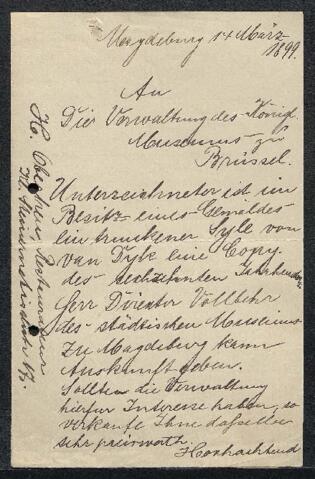 Magdeburg 14 März
1899.
An
Die Verwaltung des Königl
Museums zu
Brüssel.
Unterzeichneter ist im
Besitz eines Gemäldes
ein trunkener Sylen von
van Dyk eine Copy
des sechzehnden Jahrhunderts
Herr Director Vollbehr
des städtischen Museums
zu Magdeburg kann
Auskunft geben.
Sollten die Verwaltung
hierfür Interesse haben, so
verkaufe Ihne dasselbe
sehr preiswerth.
Hochachtend
H. Restaurateur